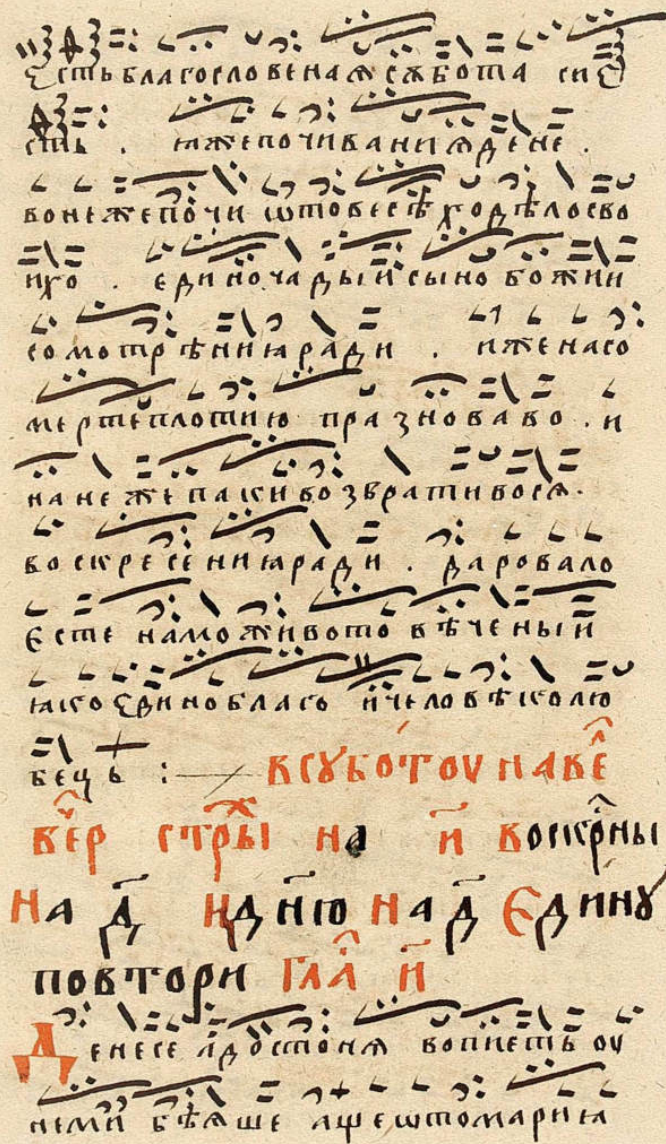 Єсть благословеная сѧбота си є
сть . ꙗже почиваниѧ дене .
во неже почи ѿ товесѣхо дѣло сво
ихо . единочадыи сыно божии
сомотрѣниꙗ ради . иже на со
мерте плотию празновово . и
на неже паки возвративося .
воскресениꙗ ради . даровало
есте намо живото вѣченыи
ꙗко єдино благо и человѣколю
бецъ : В сꙋботоу на ве
вер стры на и воскрны
На д И днию На д Єдинꙋ
повтори Гла и
Денесе адо стоня вопиеть оу
неми бѣяше аще ѿ то мариꙗ